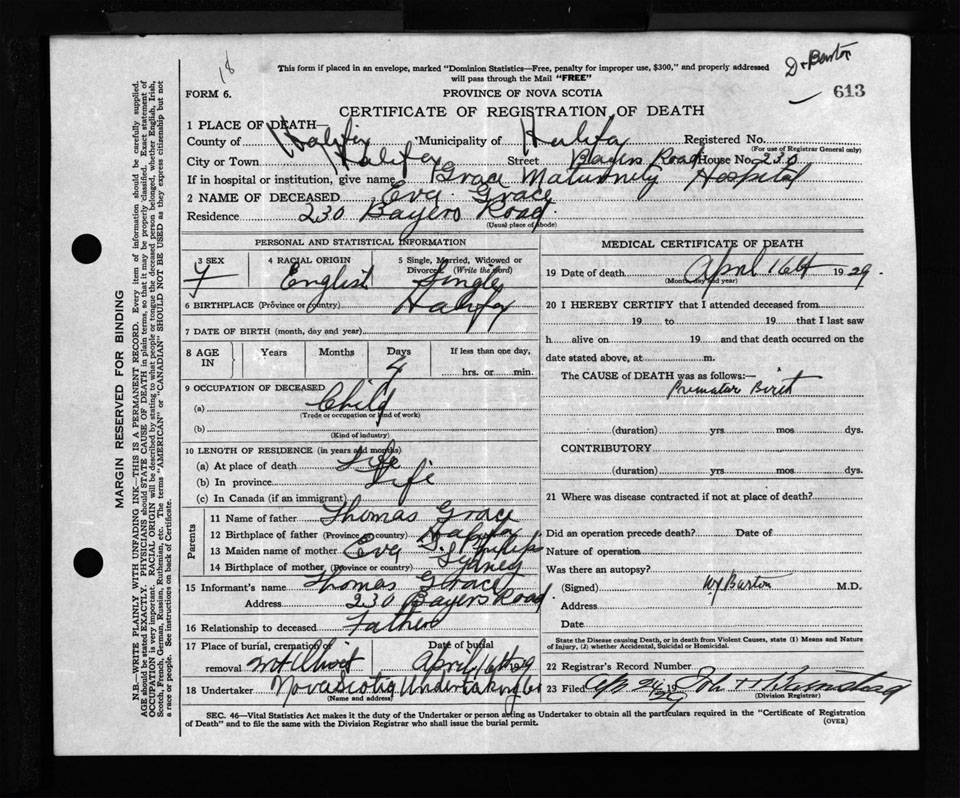 18
Dr Barton
This form if placed in an envelope, marked "Dominion Statistics—Free, penalty for improper use, $300," and properly addressed
will pass through the Mail "FREE"
613
FORM 6.
PROVINCE OF NOVA SCOTIA
CERTIFICATE OF REGISTRATION OF DEATH
1 PLACE OF DEATH—
County of Halifax Municipality of Halifax Registered No.
(For use of Registrar General only)
City or Town Halifax Street Bayers Road House No. 230
If in hospital or institution, give name Grace Maturnity Hospital
2 NAME OF DECEASED Eva Grace
Residence 230 Bayers Road
(Usual place of abode)
PERSONAL AND STATISTICAL INFORMATION
3 SEX F
4 RACIAL ORIGIN English
5 Single, Married, Widowed or Divorced (Write the word) Single
6 BIRTHPLACE (Province or country) Halifax
7 DATE OF BIRTH (month, day and year)
8 AGE IN Years Months Days 4 If less than one day, hrs. or min.
9 OCCUPATION OF DECEASED
(a) Child
(Trade or occupation or kind of work)
(b)
(Kind of industry)
10 LENGTH OF RESIDENCE (in years and months)
(a) At place of death Life
(b) In province Life
(c) In Canada (if an immigrant)
Parents
11 Name of father Thomas Grace
12 Birthplace of father (Province or country) Halifax
13 Maiden name of mother Eva
14 Birthplace of mother (Province or country) Sydney
15 Informant's name Thomas Grace
Address 230 Bayers Road
16 Relationship to deceased Father
17 Place of burial, cremation or removal Mt Olivet
Date of burial April 16th 1929
18 Undertaker Nova Scotia Undertaking Co
(Name and address)
MEDICAL CERTIFICATE OF DEATH
19 Date of death April 16th 1929.
(Month, day and year)
20 I HEREBY CERTIFY that I attended deceased from
19 to 19 that I last saw
h alive on 19 and that death occurred on the
date stated above, at m.
The CAUSE of DEATH was as follows:—
Prematur Birth
(duration) yrs. mos. dys.
CONTRIBUTORY
(duration) yrs. mos. dys.
21 Where was disease contracted if not at place of death?
Did an operation precede death? Date of
Nature of operation
Was there an autopsy?
(Signed) Barton M.D.
Address
Date
State the Disease causing Death, or in death from Violent Causes, state (1) Means and Nature
of Injury, (2) whether Accidental, Suicidal or Homicidal.
22 Registrar's Record Number
23 Filed
(Division Registrar)
SEC. 46—Vital Statistics Act makes it the duty of the Undertaker or person acting as Undertaker to obtain all the particulars required in the "Certificate of Registration
of Death" and to file the same with the Division Registrar who shall issue the burial permit.
(OVER)
MARGIN RESERVED FOR BINDING
N.B.—WRITE PLAINLY WITH UNFADING INK—THIS IS A PERMANENT RECORD. Every item of information should be carefully supplied.
AGE should be stated EXACTLY. PHYSICIANS should STATE CAUSE OF DEATH in plain terms, so that it may be properly classified. Exact statement of
OCCUPATION is very important. RACIAL ORIGIN will be described by stating to what people or tongue the deceased person belonged, whether English, Irish,
Scotch, French, German, Russian, Ruthenian, etc. The terms "AMERICAN" or "CANADIAN" SHOULD NOT BE USED as they express citizenship but not
a race or people. See instructions on back of Certificate.